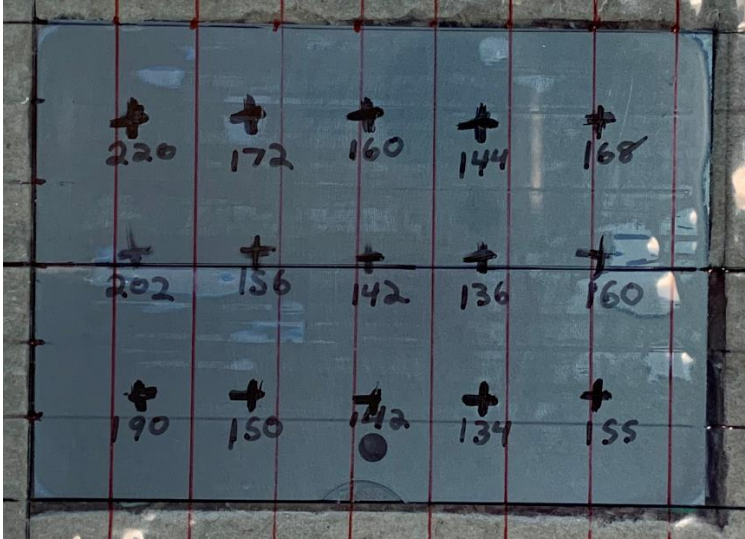 220 172 160 144 168
202 156 142 136 160
190 150 142 134 155